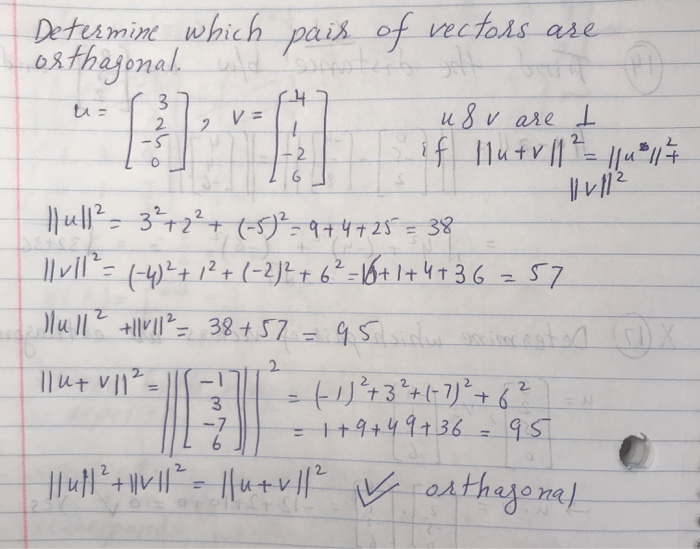 Determine which pair of vectors are
orthagonal.
u = [3 2 -5 0], v = [-4 1 -2 6]
u & v are ⊥
if ||u+v||² = ||u||² +
||v||²
||u||² = 3² + 2² + (-5)² = 9 + 4 + 25 = 38
||v||² = (-4)² + 1² + (-2)² + 6² = 16 + 1 + 4 + 36 = 57
||u||² + ||v||² = 38 + 57 = 95
||u + v||² = ||[-1 3 -7 6]||² = (-1)² + 3² + (-7)² + 6²
= 1 + 9 + 49 + 36 = 95
||u||² + ||v||² = ||u + v||² ✓ orthagonal